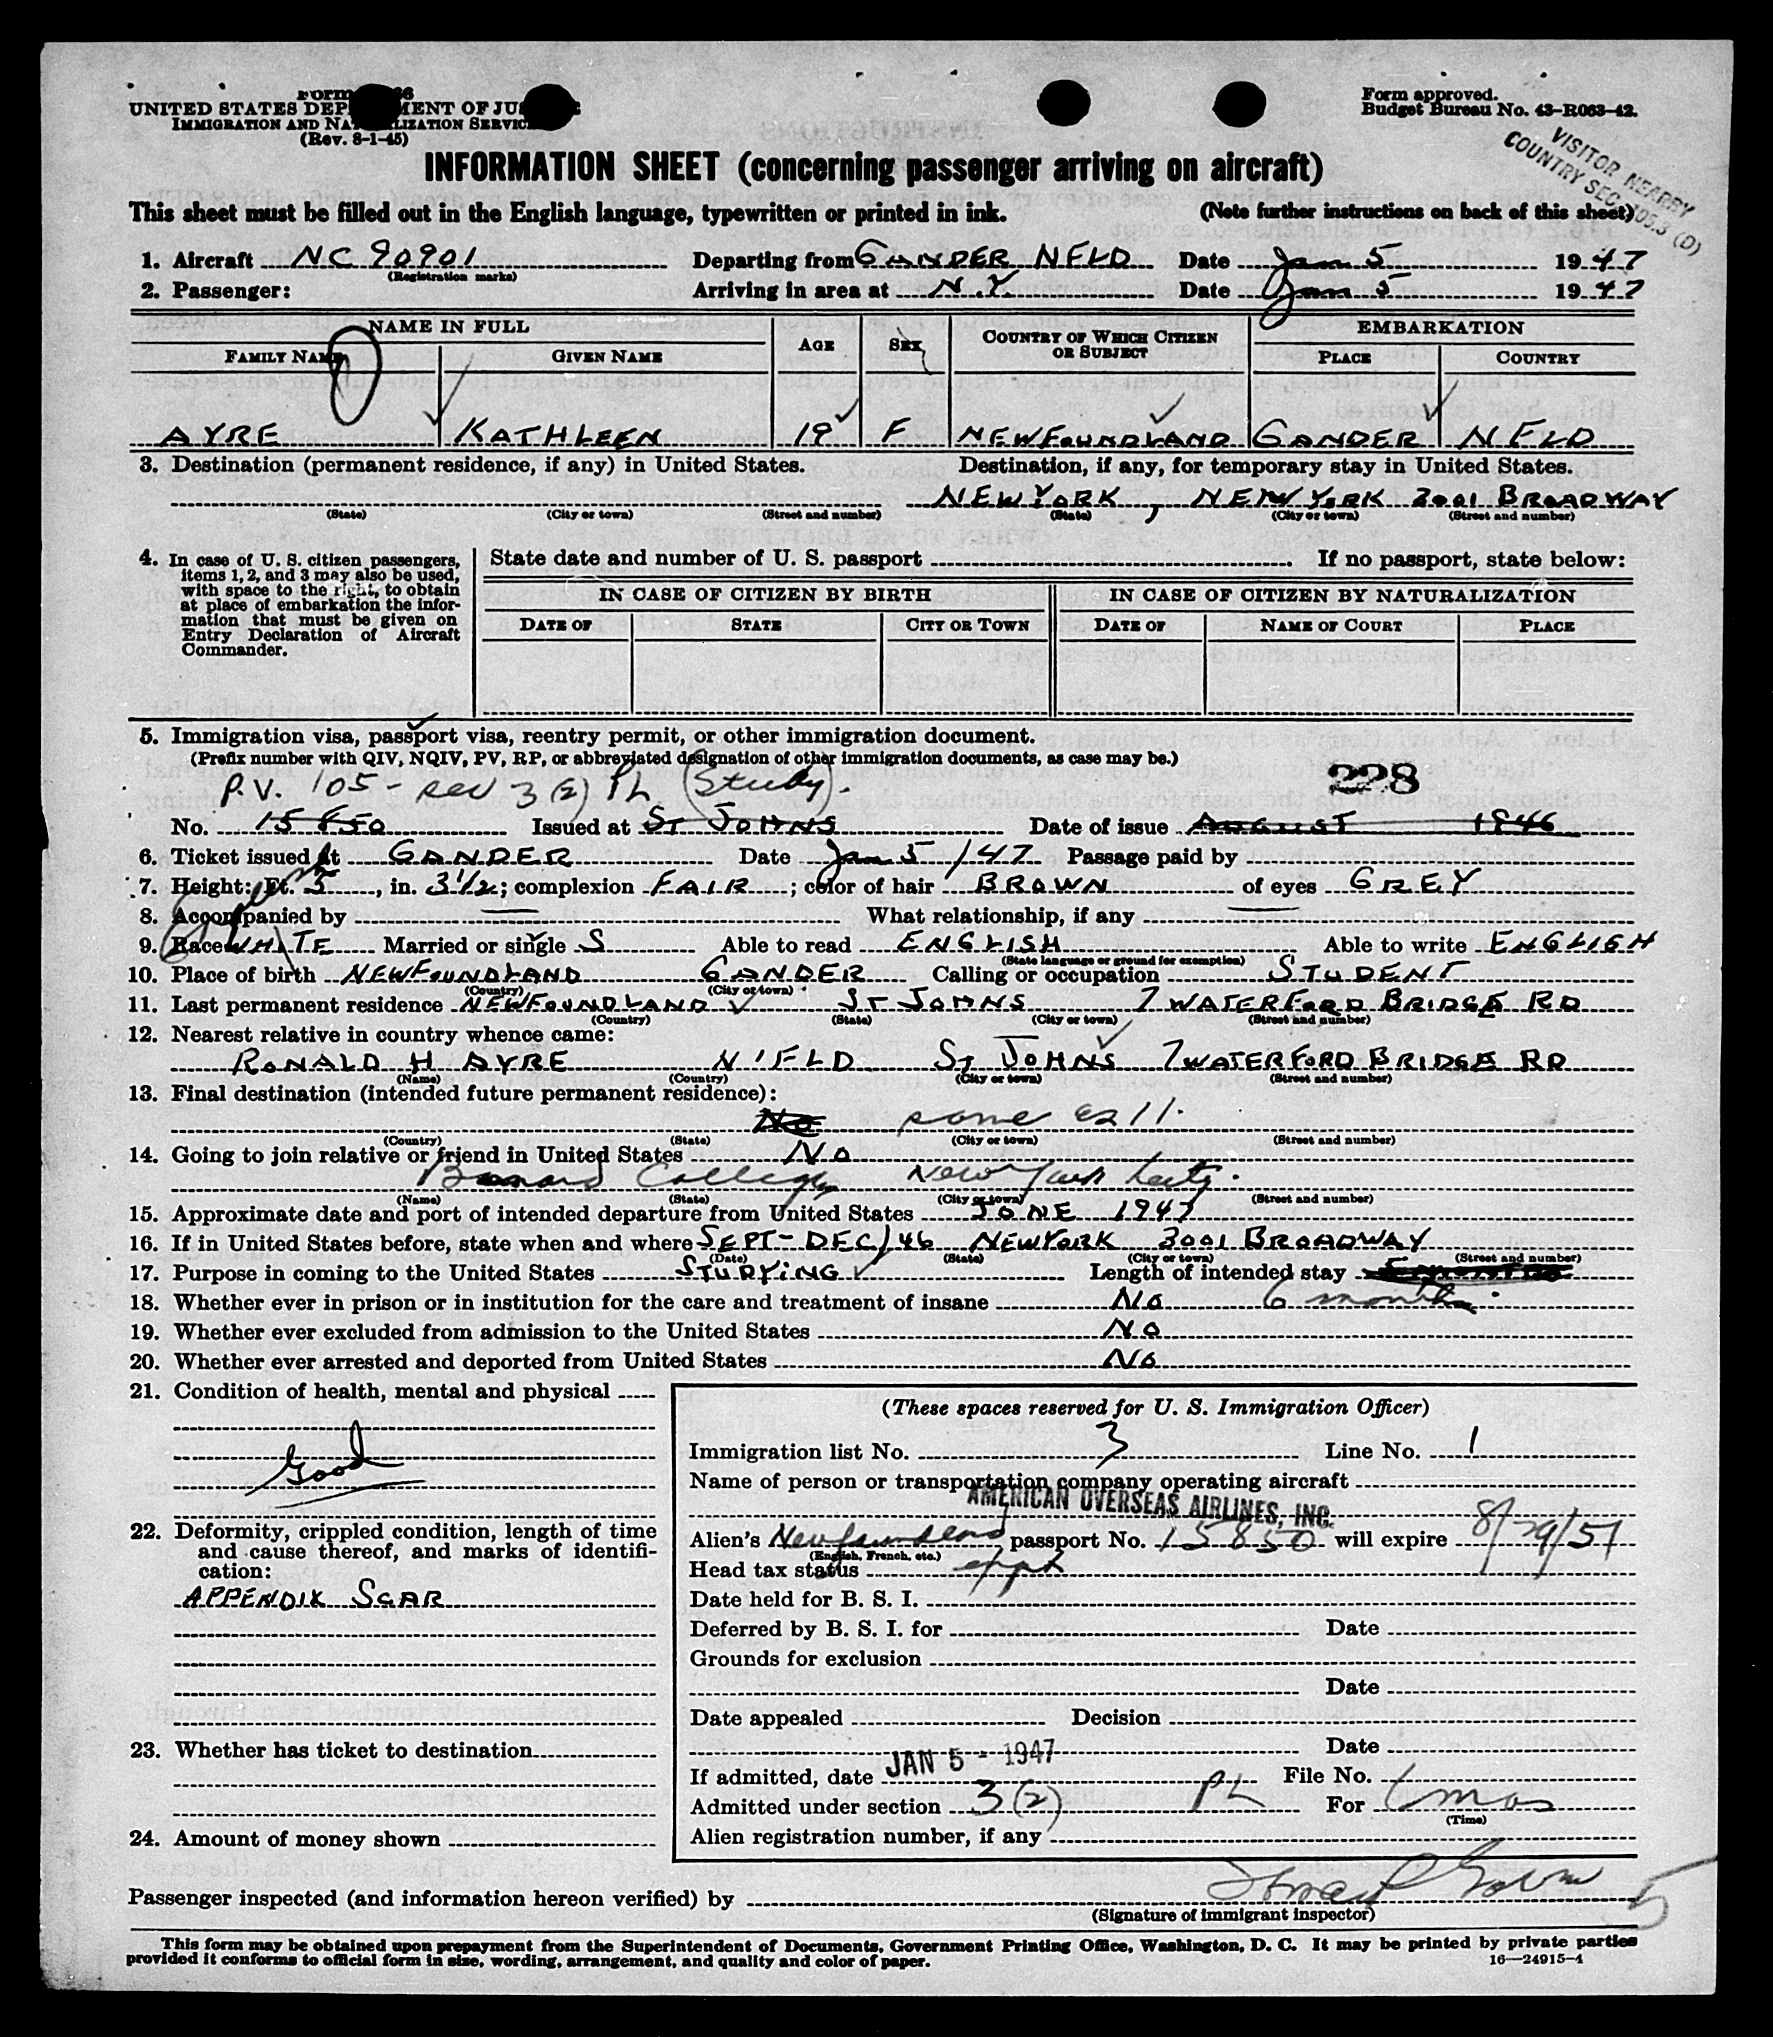 Form
UNITED STATES DEPARTMENT OF JUSTICE
IMMIGRATION AND NATURALIZATION SERVICE
(Rev. 8-1-45)
Form approved.
Budget Bureau No. 43-R063-42.
VISITOR NEARBY
COUNTRY SEC. 105.3 (D)
INFORMATION SHEET (concerning passenger arriving on aircraft)
This sheet must be filled out in the English language, typewritten or printed in ink. (Note further instructions on back of this sheet)
1. Aircraft NC 90901 Departing from GANDER NFLD Date Jan 5 1947
(Registration marks)
2. Passenger: Arriving in area at N.Y. Date Jan 5 1947
NAME IN FULL AGE SEX COUNTRY OF WHICH CITIZEN OR SUBJECT EMBARKATION
FAMILY NAME GIVEN NAME PLACE COUNTRY
AYRE KATHLEEN 19 F NEWFOUNDLAND GANDER NFLD
3. Destination (permanent residence, if any) in United States. Destination, if any, for temporary stay in United States.
NEW YORK, NEW YORK 3001 BROADWAY
(State) (City or town) (Street and number) (State) (City or town) (Street and number)
4. In case of U. S. citizen passengers, items 1, 2, and 3 may also be used, with space to the right, to obtain at place of embarkation the information that must be given on Entry Declaration of Aircraft Commander.
State date and number of U. S. passport If no passport, state below:
IN CASE OF CITIZEN BY BIRTH IN CASE OF CITIZEN BY NATURALIZATION
DATE OF STATE CITY OR TOWN DATE OF NAME OF COURT PLACE
5. Immigration visa, passport visa, reentry permit, or other immigration document.
(Prefix number with QIV, NQIV, PV, RP, or abbreviated designation of other immigration documents, as case may be.)
P.V. 105 - sec 3(2) PL (Study). 228
No. 15850 Issued at ST JOHNS Date of issue AUGUST 1946
6. Ticket issued at GANDER Date Jan 5/47 Passage paid by
7. Height: Ft. 5, in. 3 1/2; complexion FAIR; color of hair BROWN of eyes GREY
8. Accompanied by — What relationship, if any —
9. Race WHITE Married or single S Able to read ENGLISH Able to write ENGLISH
(State language or ground for exemption)
10. Place of birth NEWFOUNDLAND GANDER Calling or occupation STUDENT
(Country) (City or town)
11. Last permanent residence NEWFOUNDLAND ST JOHNS 7 WATERFORD BRIDGE RD
(Country) (State) (City or town) (Street and number)
12. Nearest relative in country whence came:
RONALD H AYRE N'FLD ST JOHNS 7 WATERFORD BRIDGE RD
(Name) (Country) (City or town) (Street and number)
13. Final destination (intended future permanent residence):
No same as 11.
(Country) (State) (City or town) (Street and number)
14. Going to join relative or friend in United States No
Barnard College New York City.
(Name) (State) (City or town) (Street and number)
15. Approximate date and port of intended departure from United States JUNE 1947
16. If in United States before, state when and where SEPT - DEC/46 NEW YORK 3001 BROADWAY
(Date) (State) (City or town) (Street and number)
17. Purpose in coming to the United States STUDYING Length of intended stay
18. Whether ever in prison or in institution for the care and treatment of insane No 6 months.
19. Whether ever excluded from admission to the United States No
20. Whether ever arrested and deported from United States No
21. Condition of health, mental and physical
Good
22. Deformity, crippled condition, length of time and cause thereof, and marks of identification:
APPENDIX SCAR
23. Whether has ticket to destination
24. Amount of money shown
(These spaces reserved for U. S. Immigration Officer)
Immigration list No. 3 Line No. 1
Name of person or transportation company operating aircraft
AMERICAN OVERSEAS AIRLINES, INC.
Alien's Newfoundland passport No. 15850 will expire 8/29/51
(English, French, etc.)
Head tax status
Date held for B. S. I.
Deferred by B. S. I. for Date
Grounds for exclusion
Date
Date appealed Decision
Date
If admitted, date JAN 5 - 1947 File No.
Admitted under section 3(2) PL For 6 mos
(Time)
Alien registration number, if any
Passenger inspected (and information hereon verified) by
(Signature of immigrant inspector)
5
This form may be obtained upon prepayment from the Superintendent of Documents, Government Printing Office, Washington, D. C. It may be printed by private parties
provided it conforms to official form in size, wording, arrangement, and quality and color of paper. 16—24915-4